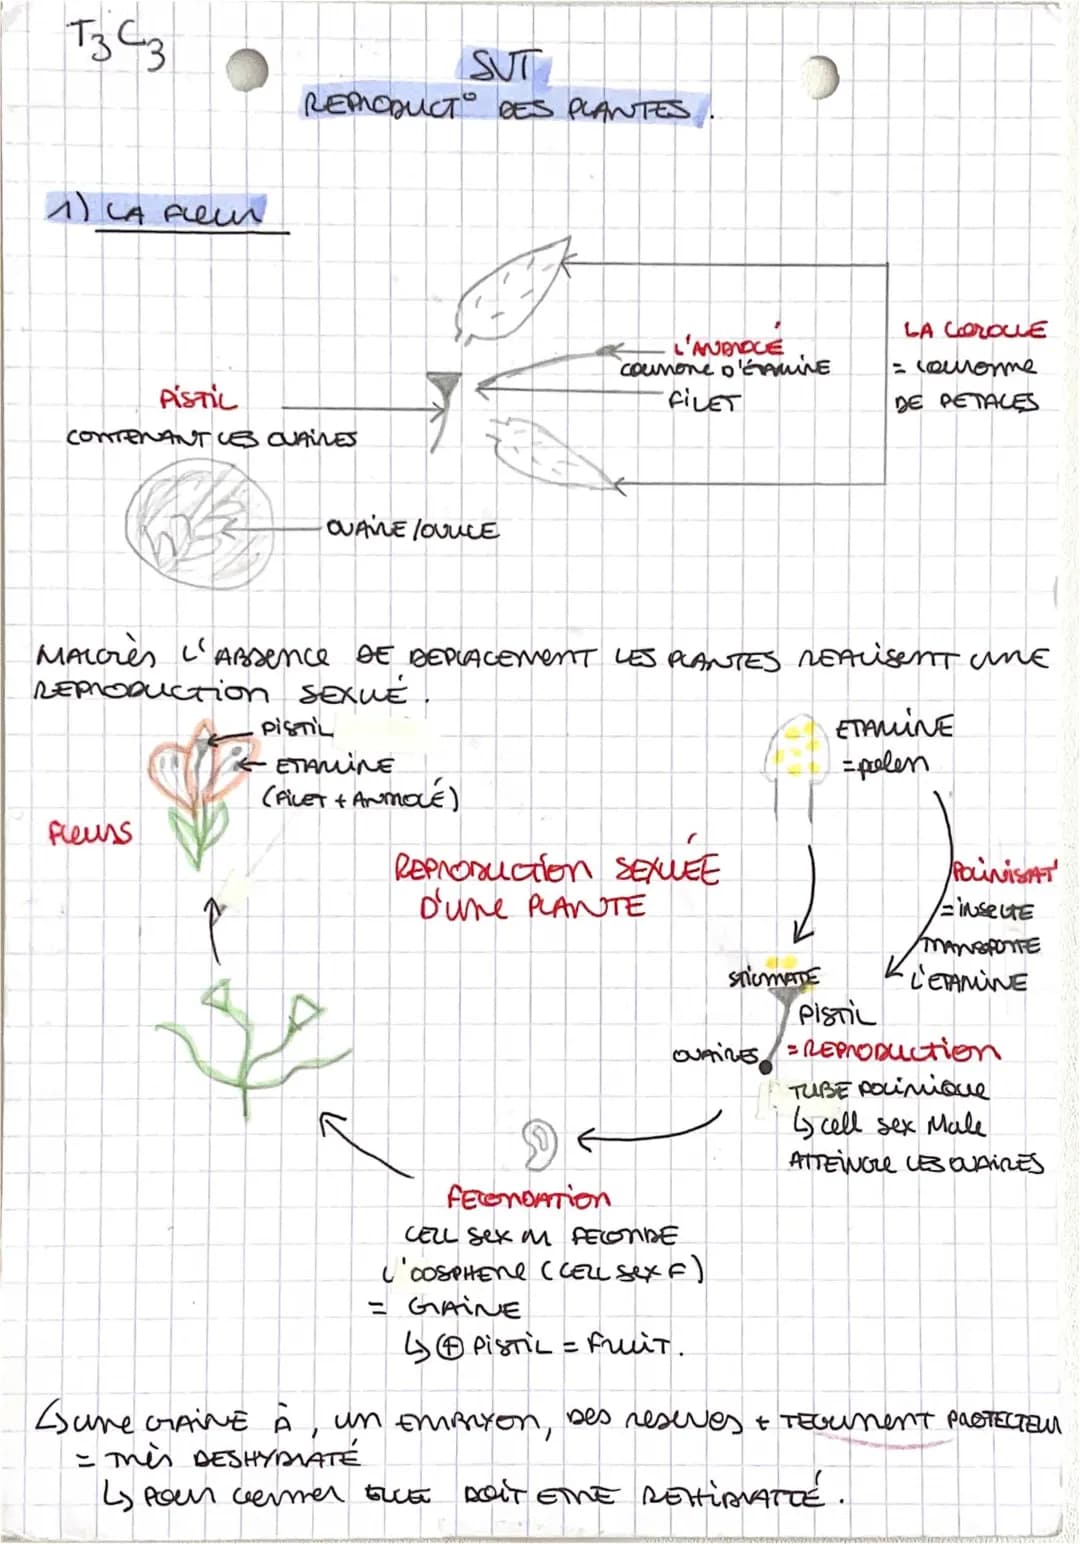 T3C3
SVT
REPRODUCT° DES PLANTES.
1) LA fleur
L'ANDROCÉ
COURONE D'ÉTAMINE
FILET
LA COROLLE
= couronne
DE PETALES
PISTIL
CONTENANT LES OVAIRES
OVAIRE/OVULE
MALGRÈS L'ABSENCE DE DEPLACEMENT LES PLANTES REALISENT UNE
REPRODUCTION SEXUÉ.
PISTIL
ETAMINE
(FILET + ANDROCÉ)
fleurs
ETAMINE
= polen
REPRODUCTION SEXUÉE
D'UNE PLANTE
POLINISAT°
= INSECTE
TRANSPORTE
L'ETAMINE
STIGMATE
PISTIL
OVAIRES
= REPRODUCTION
TUBE POLINIQUE
↳ cell sex Male
ATTEINGRE LES OVAIRES
FECONDATION
CELL SEX M FECONDE
L'OOSPHERE (CELL SEX F)
= GRAINE
↳ ⊕ PISTIL = FRUIT.
↳ une GRAINE À, un EMBRYON, DES reserves + TEGUMENT PROTECTEUR
= TRÈS DESHYDRATÉ
↳ POUR GERMER ELLE DOIT ETRE REHIDRATTÉ.